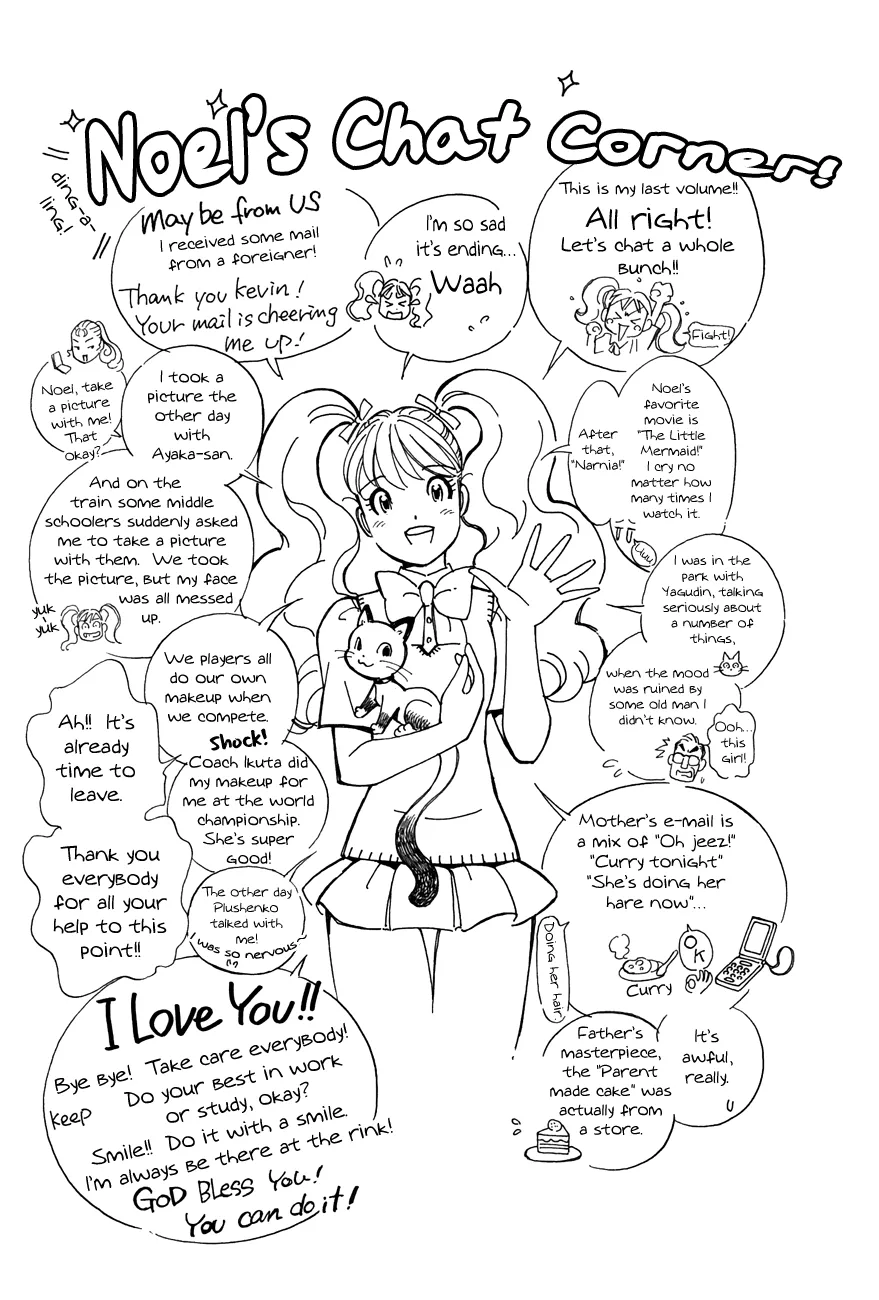 Noel's Chat Corner!
ding-a-
ling!
This is my last volume!!
All right!
Let's chat a whole
bunch!!
Fight!
I'm so sad
it's ending...
Waah
Maybe from US
I received some mail
from a foreigner!
Thank you Kevin!
Your mail is cheering
me up!
Noel's
favorite
movie is
"The Little
Mermaid!"
I cry no
matter how
many times I
watch it.
After
that,
"Narnia!"
Uuu
I took a
picture the
other day
with
Ayaka-san.
Noel, take
a picture
with me!
That
okay?
And on the
train some middle
schoolers suddenly asked
me to take a picture
with them. We took
the picture, but my face
was all messed
up.
yuk
yuk
I was in the
park with
Yagudin, talking
seriously about
a number of
things,
when the mood
was ruined by
some old man I
didn't know.
Ooh...
this
girl!
We players all
do our own
makeup when
we compete.
Shock!
Coach Ikuta did
my makeup for
me at the world
championship.
She's super
good!
The other day
Plushenko
talked with
me!
I was so nervous~
Mother's e-mail is
a mix of "Oh jeez!"
"Curry tonight"
"She's doing her
hare now"...
OK
Curry
Doing her hair.
It's
awful,
really.
Father's
masterpiece,
the "Parent
made cake" was
actually from
a store.
Ah!! It's
already
time to
leave.
Thank you
everybody
for all your
help to this
point!!
I Love You!!
Bye Bye! Take care everybody!
Keep Do your best in work
or study, okay?
Smile!! Do it with a smile.
I'm always be there at the rink!
God Bless You!
You can do it!